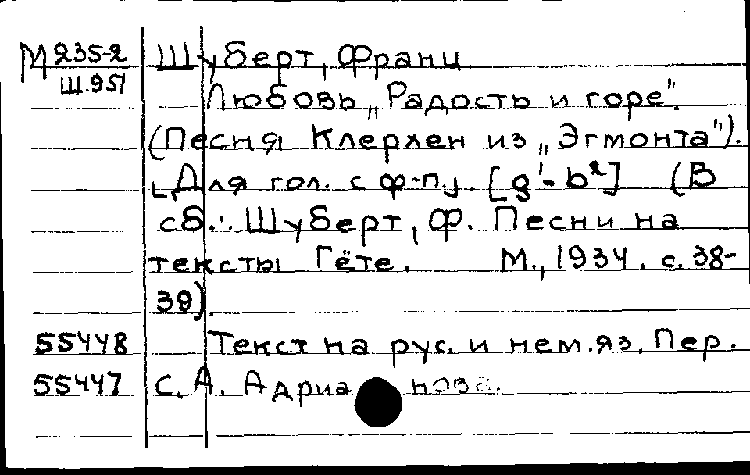 М 235-2 Шуберт, Франц
Ш.951 Любовь „Радость и горе".
(Песня Клерхен из „Эгмонта").
[Для гол. с ф-п]. [g'-b²] (В
сб.: Шуберт, Ф. Песни на
тексты Гёте. М., 1934. с. 38-
39).
55448 Текст на рус. и нем. яз. Пер.
55447 С. А. Адрианова.